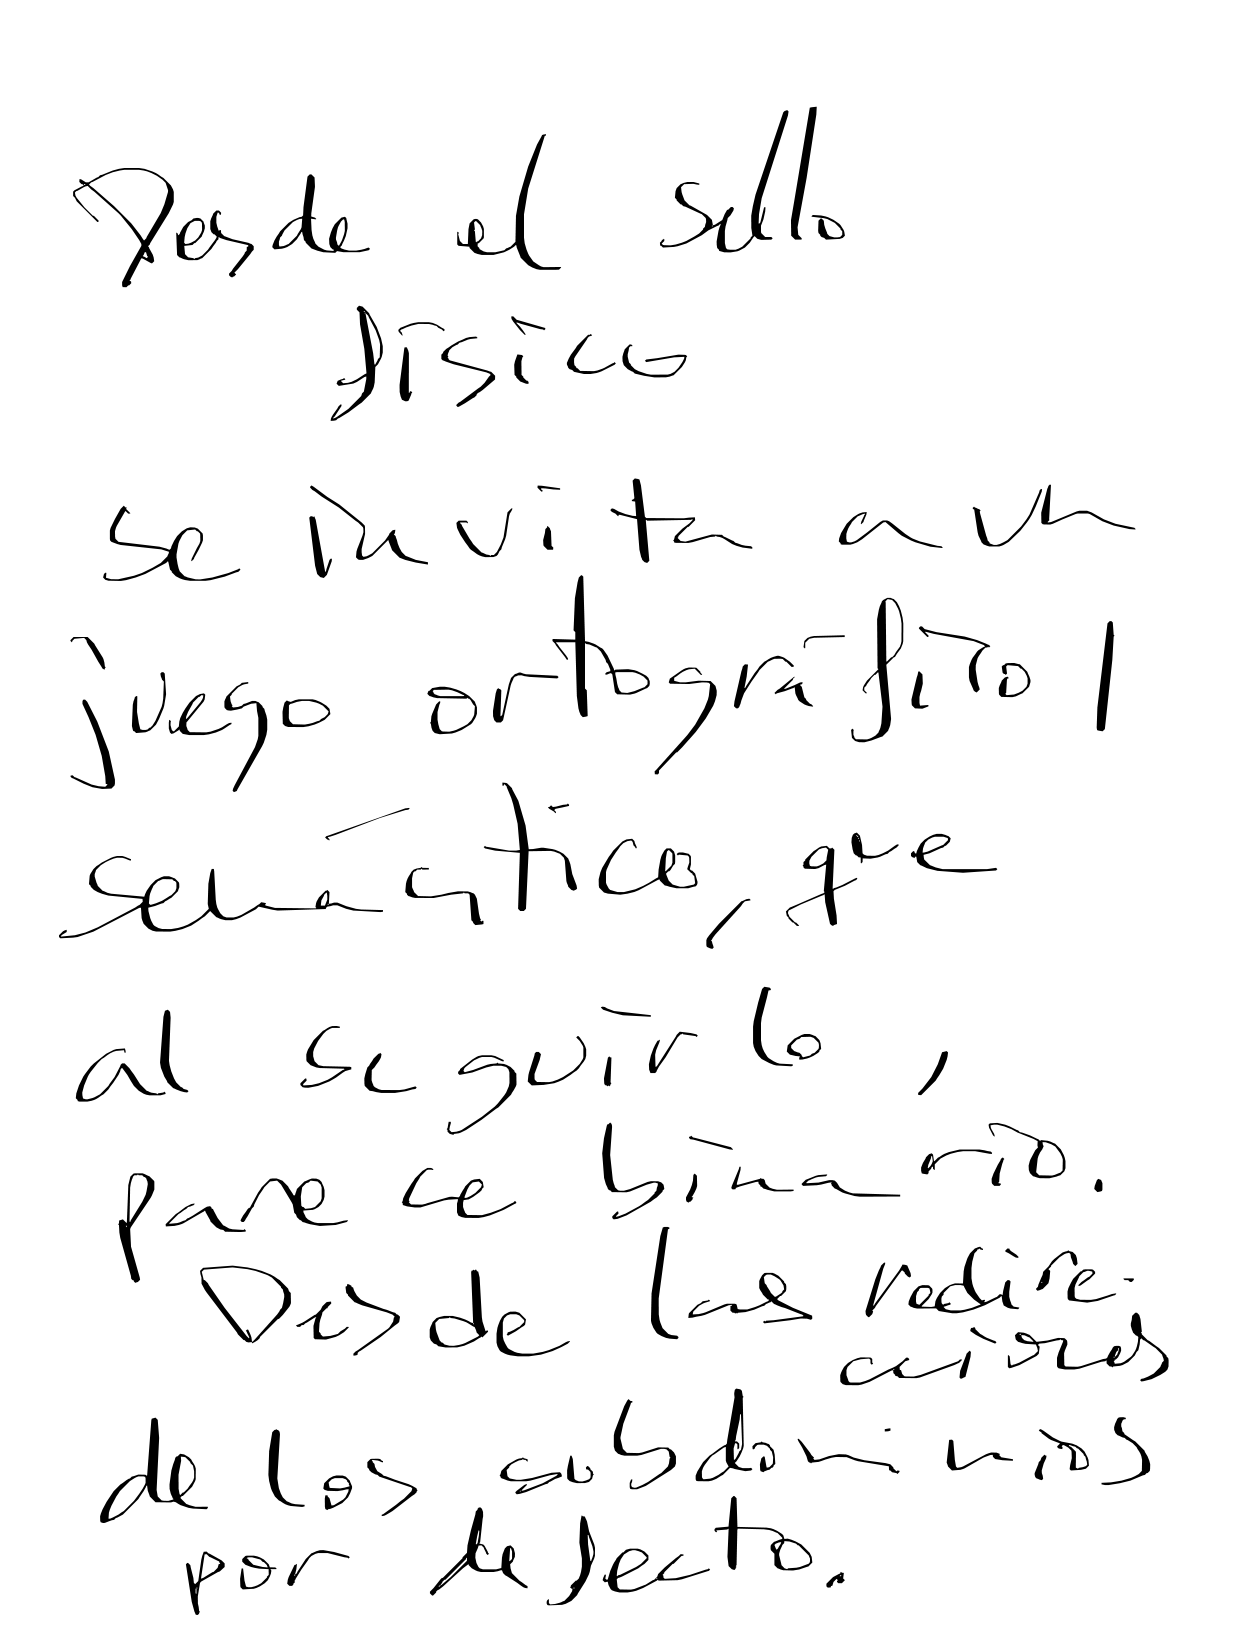 Desde el sello
físico
se invita a un
juego ortográfico /
semántico, que
al seguirlo,
parece binario.
Desde las redirec-
ciones
de los subdominios
por defecto.